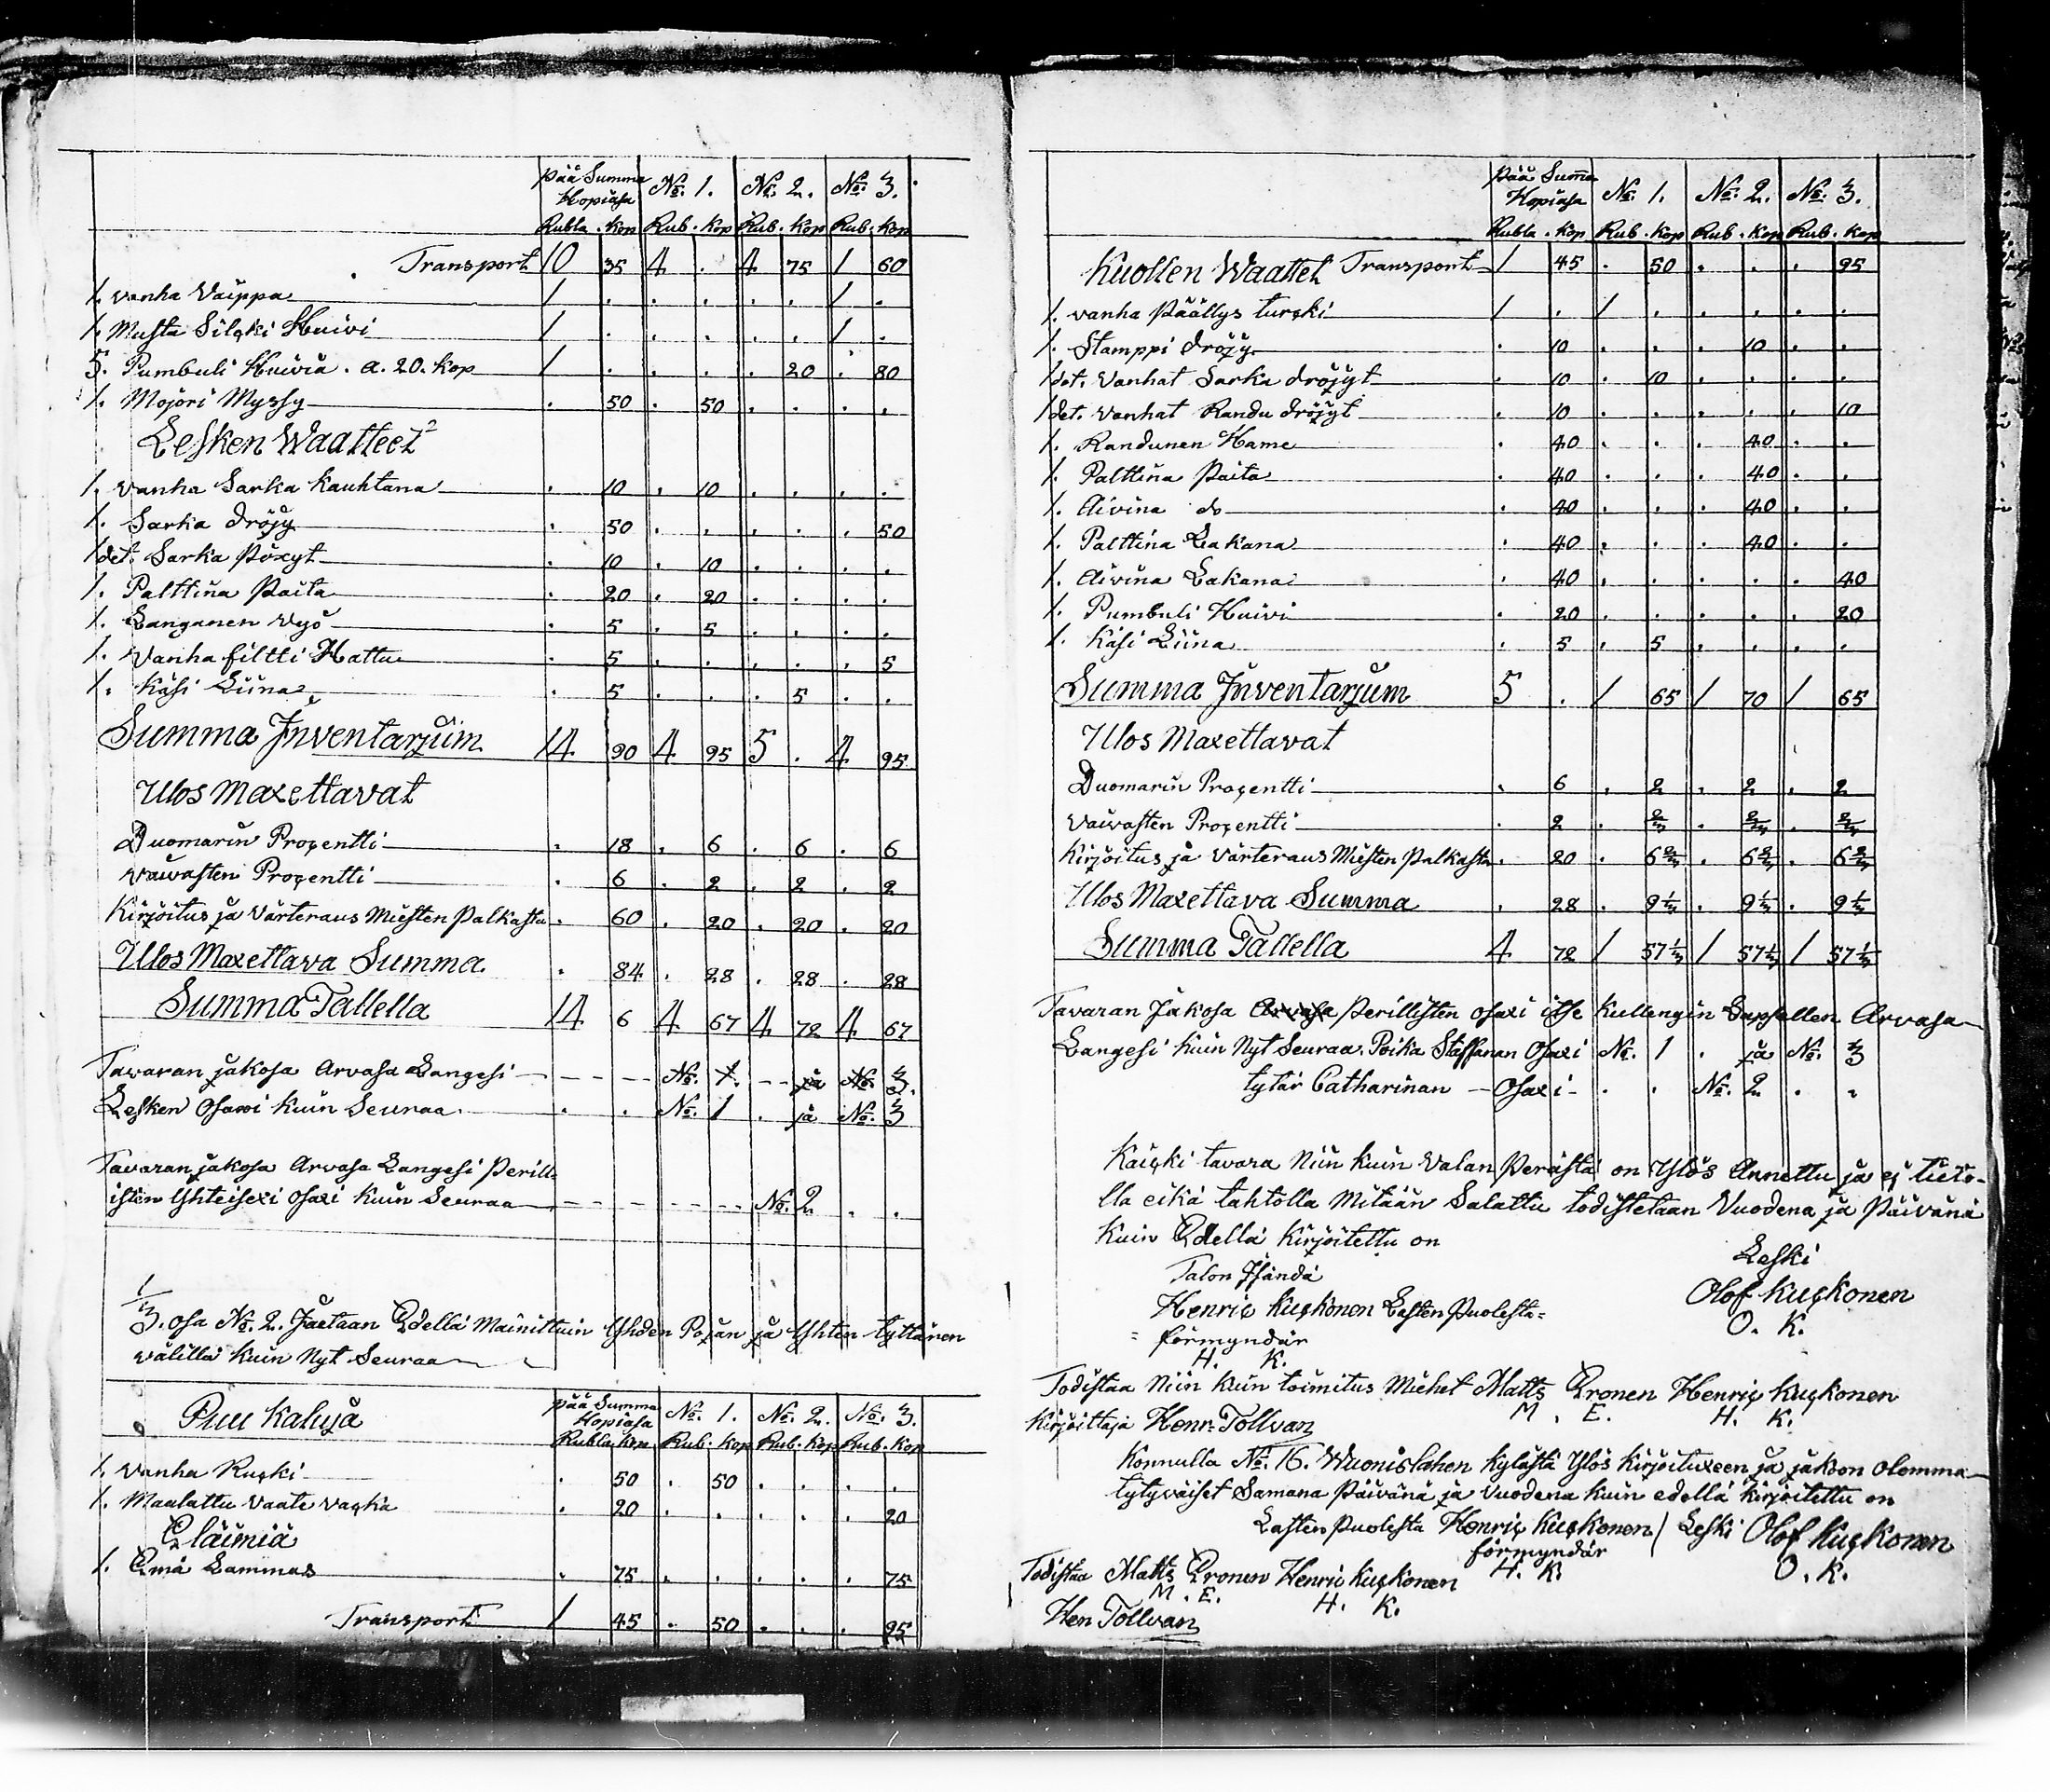 Pää Summa Hopiasa No. 1. No. 2. No. 3.
Rubla . Kop Rub . Kop Rub . Kop Rub . Kop
Transport 10 35 4 . 4 75 1 60
1. vanha Vaippa 1 . . . . . 1 .
1. Musta Silçki Huivi 1 . . . . . 1 .
5. Pumbuli Huivia . a. 20. Kop 1 . . . . 20 . 80
1. Mojori Myssy . 50 . 50 . . . .
Lesken Waatteet
1. vanha Sarka Kauhtana . 10 . 10 . . . .
1. Sarka dröjy . 50 . . . . . 50
1 det. Sarka Pöxyt . 10 . 10 . . . .
1. Palttina Paita . 20 . 20 . . . .
1. Langanen Vyö . 5 . 5 . . . .
1. Vanha filtti Hattu . 5 . . . . . 5
1. Käsi Liina . 5 . . . 5 . .
Summa Inventarjum 14 90 4 95 5 . 4 95
Ulos Maxettavat
Duomarin Proçentti . 18 . 6 . 6 . 6
Vaivasten Proçentti . 6 . 2 . 2 . 2
Kirjoitus ja Värteraus Miesten Palkasta . 60 . 20 . 20 . 20
Ulos Maxettava Summa . 84 . 28 . 28 . 28
Summa Tallella 14 6 4 67 4 72 4 67
Tavaran jakosa Arvasa Langesi No. 1. ja No. 3.
Lesken Osaxi Kuin Seuraa . . No. 1 . ja No. 3
Tavaran jakosa Arvasa Langesi Perill-
isten Yhteisexi Osaxi Kuin Seuraa No. 2 . .
1/3. osa No. 2. Jaetaan Edellä Mainittuin Yhden Pojan ja Yhten tyttären
välillä Kuin Nyt Seuraa
Puu Kaluja Pää Summa Hopiasa No. 1. No. 2. No. 3.
Rubla Kop Rub . Kop Rub . Kop Rub . Kop
1. Vanha Ruçki . 50 . 50 . . . .
1. Maalattu Vaate Vaçka . 20 . . . . . 20
Eläimiä
1. Emä Lammas . 75 . . . . . 75
Transport 1 45 . 50 . . . 95
Pää Summa Hopiasa No. 1. No. 2. No. 3.
Rubla . Kop Rub . Kop Rub . Kop Rub . Kop
Kuollen Waattet Transport 1 45 . 50 . . . 95
1. vanha Päällys turçki 1 . 1 . . . . .
1. Stamppi dröjy . 10 . . . 10 . .
1 det. Vanhat Sarka dröjyt . 10 . 10 . . . .
1 det. Vanhat Randu dröjyt . 10 . . . . . 10
1. Randunen Hame . 40 . . . 40 . .
1. Palttina Paita . 40 . . . 40 . .
1. Aivina do . 40 . . . 40 . .
1. Palttina Lakana . 40 . . . 40 . .
1. Aivina Lakana . 40 . . . . . 40
1. Pumbuli Huivi . 20 . . . . . 20
1. Käsi Liina . 5 . 5 . . . .
Summa Inventarjum 5 . 1 65 1 70 1 65
Ulos Maxettavat
Duomarin Proçentti . 6 . 2 . 2 . 2
Vaivasten Proçentti . 2 . 2/3 . 2/3 . 2/3
Kirjoitus ja Värteraus Miesten Palkasta . 20 . 6 2/3 . 6 2/3 . 6 2/3
Ulos Maxettava Summa . 28 . 9 1/3 . 9 1/3 . 9 1/3
Summa Tallella 4 72 1 57 1/3 1 57 1/3 1 57 1/3
Tavaran Jakosa Arvasa Perillisten osaxi itse Kullengin Lapsellen Arvasa
Langesi Kuin Nyt Seuraa. Poika Staffanan Osaxi No. 1 . ja No. 3
tytär Catharinan Osaxi . . No. 2 . .
Kaiçki tavara Niin Kuin Valan Perästä on Ylös Annettu ja ej tieto-
lla eikä tahtolla Mitään Salattu todistetaan Vuodena ja Päivänä
Kuin Edellä Kirjoitettu on
Leski
Talon Isändä
Olof Kuçkonen
Henriç Kuçkonen Lasten Puolesta
O. K.
förmyndär
H. K.
Todistaa Niin Kuin toimitus Miehet Matts Eronen Henriç Kuçkonen
M. E. H. K.
Kirjoittaja Henr. Tollvan
Konnulla No. 16. Wuonislahen Kylästä Ylös Kirjoituxeen ja jakoon olemma
tytyväiset Samana Päivänä ja Vuodena Kuin edellä Kirjoitettu on
Lasten Puolesta Henriç Kuçkonen / Leski Olof Kuçkonen
förmyndär
H. K. O. K.
Todistaa Matts Eronen Henriç Kuçkonen
M. E. H. K.
Hen Tollvan